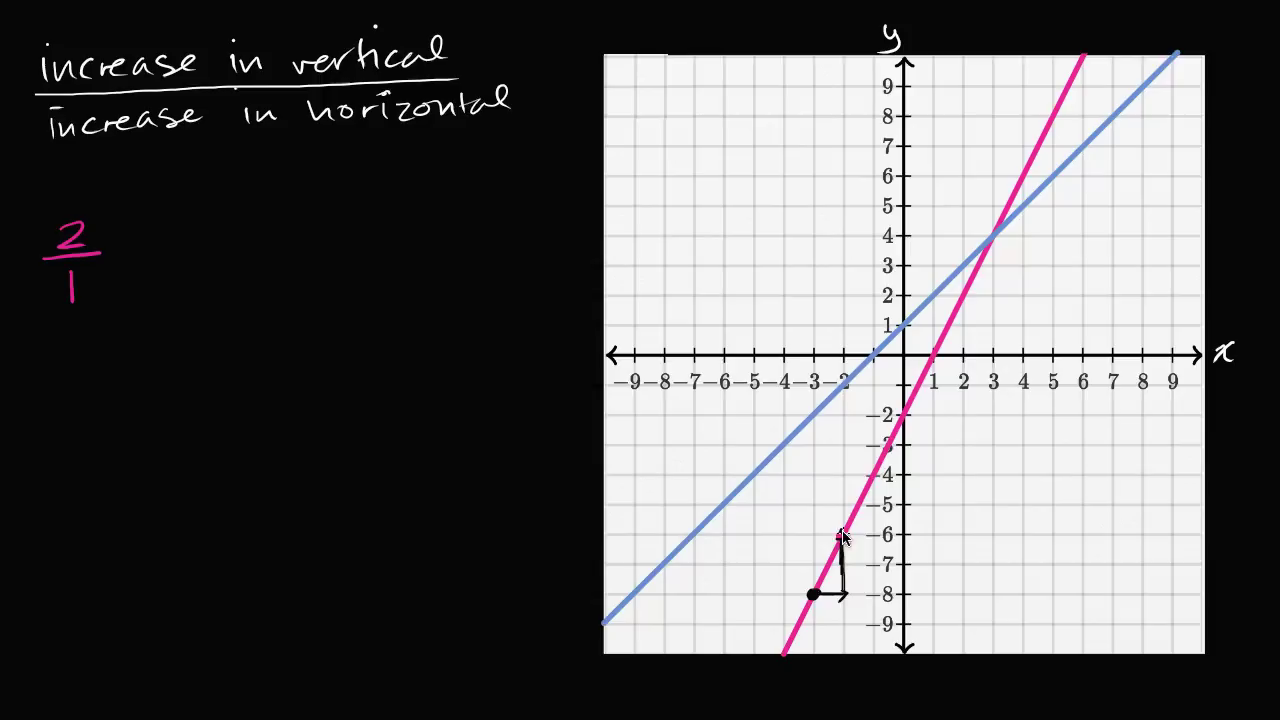 increase in vertical
increase in horizontal
2
1
y
x
9
8
7
6
5
4
3
2
1
−9 −8 −7 −6 −5 −4 −3 −2 1 2 3 4 5 6 7 8 9
−2
−3
−4
−5
−6
−7
−8
−9